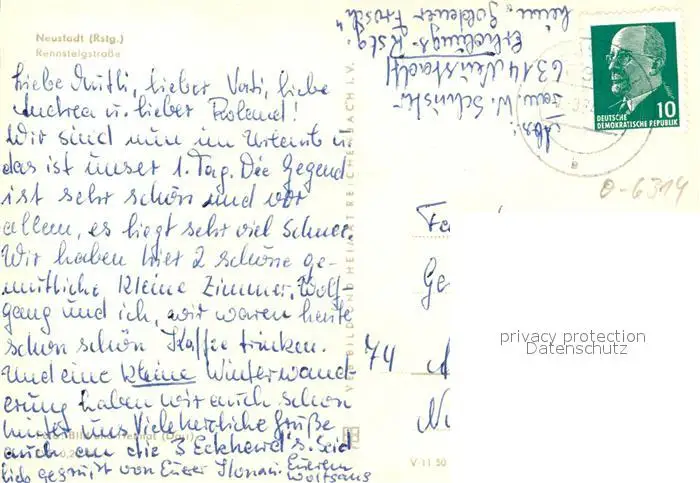 Neustadt (Rstg.)
Rennsteigstraße
Liebe Mutti, lieber Vati, liebe
Andrea u. lieber Roland!
Wir sind nun im Urlaub u.
das ist unser 1. Tag. Die Gegend
ist sehr schön und vor
allem, es liegt sehr viel Schnee.
Wir haben hier 2 schöne ge-
mütliche kleine Zimmer. Wolf-
gang und ich, wir waren heute
schon schön Kaffee trinken.
Und eine kleine Winterwand-
erung haben wir auch schon
hinter uns. Viele herzliche Grüße
auch an die 3 Eckhard's. Seid
lieb gegrüßt von Eurer Ilona u. Eurem
Wolfgang
Abs.:
6314 Neustadt
Erholungs-
heim "Goldener Frosch"
DEUTSCHE
DEMOKRATISCHE REPUBLIK
10
0-6314
74
privacy protection
Datenschutz
V 11 50